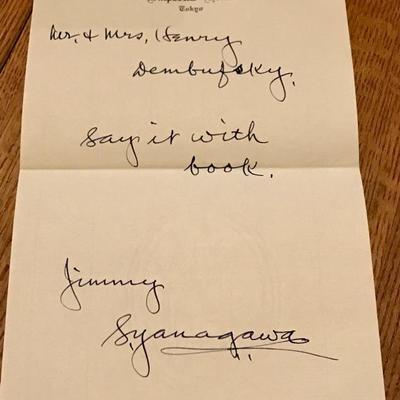 Tokyo
Mr. & Mrs. Henry
Dembufsky.
Say it with
book.
Jimmy
S. Yanagawa